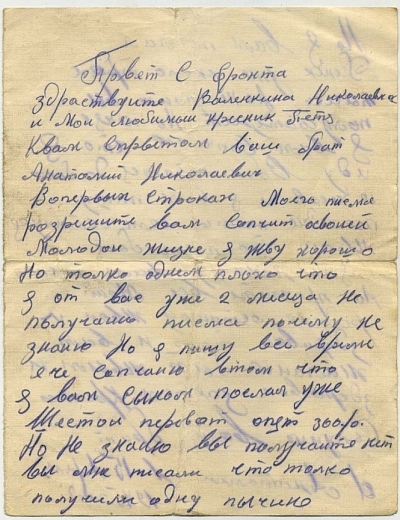 Првет с фронта
здраствуите Валенкина Николаевка
и Мои любимыи крисник Петя
Квам спрветом ваш брат
Анатолий Николаевич
Вопервых строках Моего писма
розрешите вам сопчит освоей
Молодой жизне я жву хорошо
Но толко однем плохо что
я от вас уже 2 месица не
получаию писма почему не
знаию Но я пишу все время
я вам сыном послал уже
Шестои
Но Не знаию вы получаите нет
вы мне писали что толко
получили одну